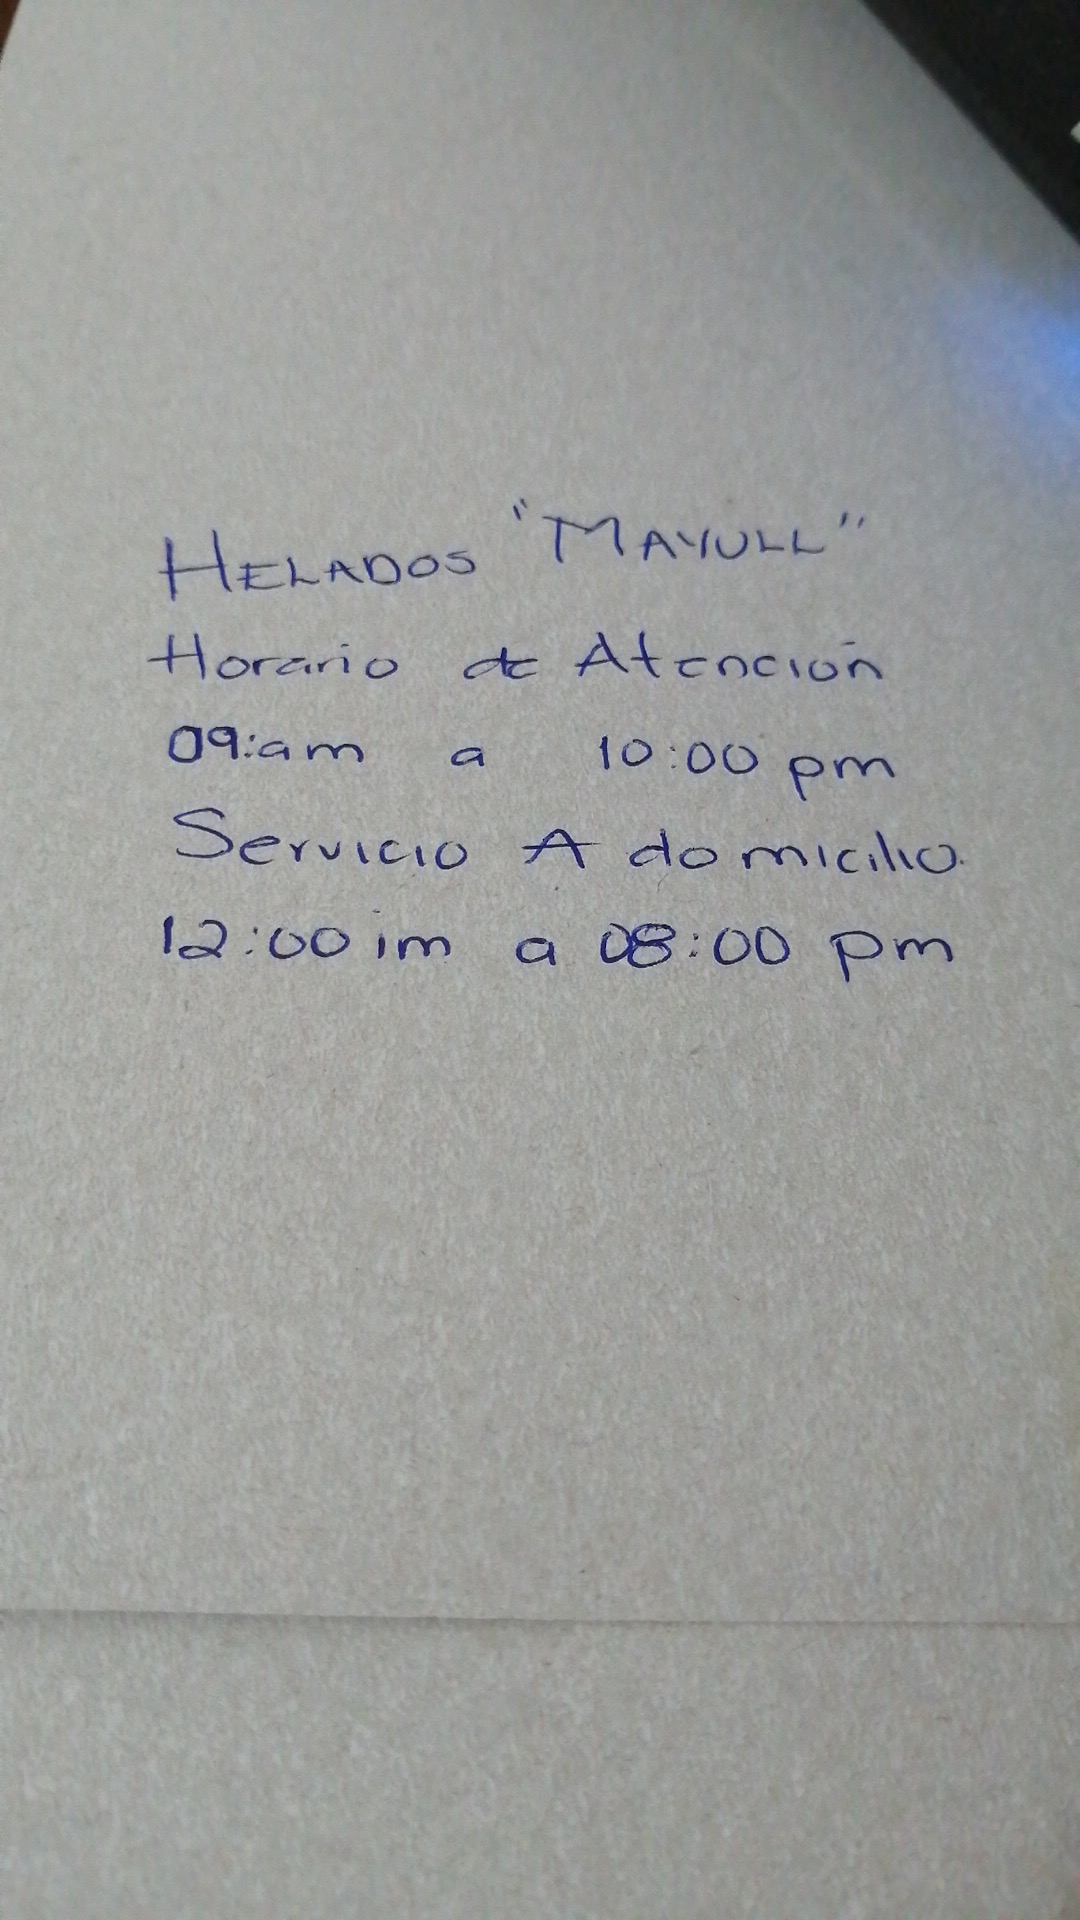 HELADOS "MAYULL"
Horario de Atención
09:am a 10:00 pm
Servicio A domicilio.
12:00 im a 08:00 pm